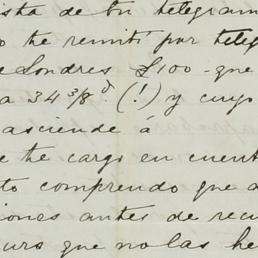 ista de tu telegram
o te remití por teleg
e Londres £100 - que
a 34 3/8 d. (!) y cuyo
asciende á
e te cargo en cuent
to comprendo que a
iones antes de recu
uro que no las he